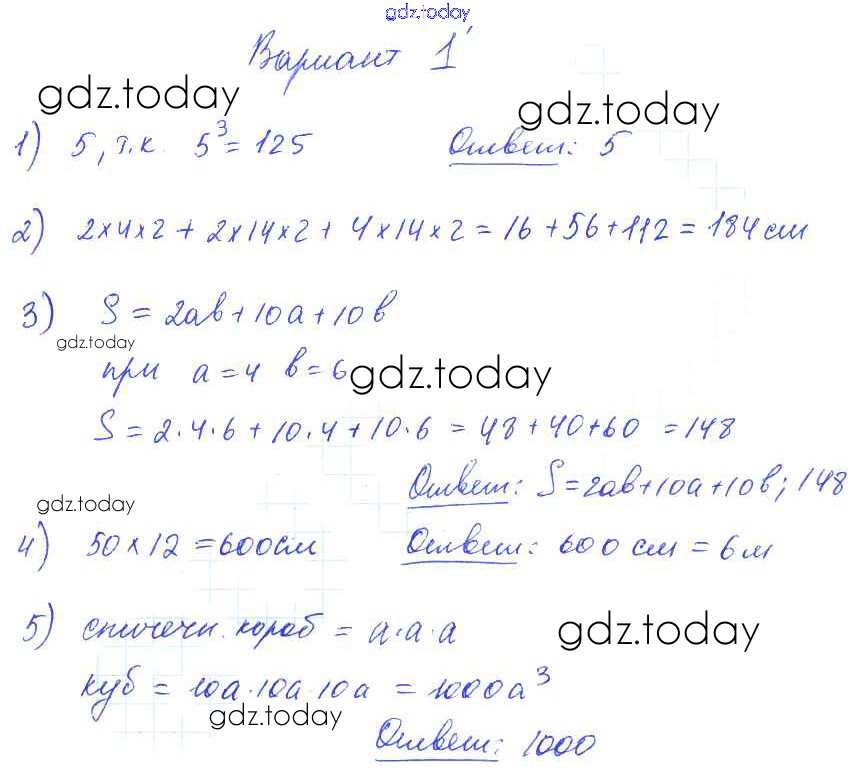 gdz.today
Вариант 1
gdz.today
gdz.today
1) 5, т.к. 5³ = 125 Ответ: 5
2) 2×4×2 + 2×14×2 + 4×14×2 = 16 + 56 + 112 = 184 см
3) S = 2ab + 10a + 10b
gdz.today
при a = 4 b = 6
gdz.today
S = 2·4·6 + 10·4 + 10·6 = 48 + 40 + 60 = 148
Ответ: S = 2ab + 10a + 10b; 148
gdz.today
4) 50 × 12 = 600 см Ответ: 600 см = 6 м
5) спичечн. короб = a·a·a
gdz.today
куб = 10a·10a·10a = 1000a³
gdz.today
Ответ: 1000